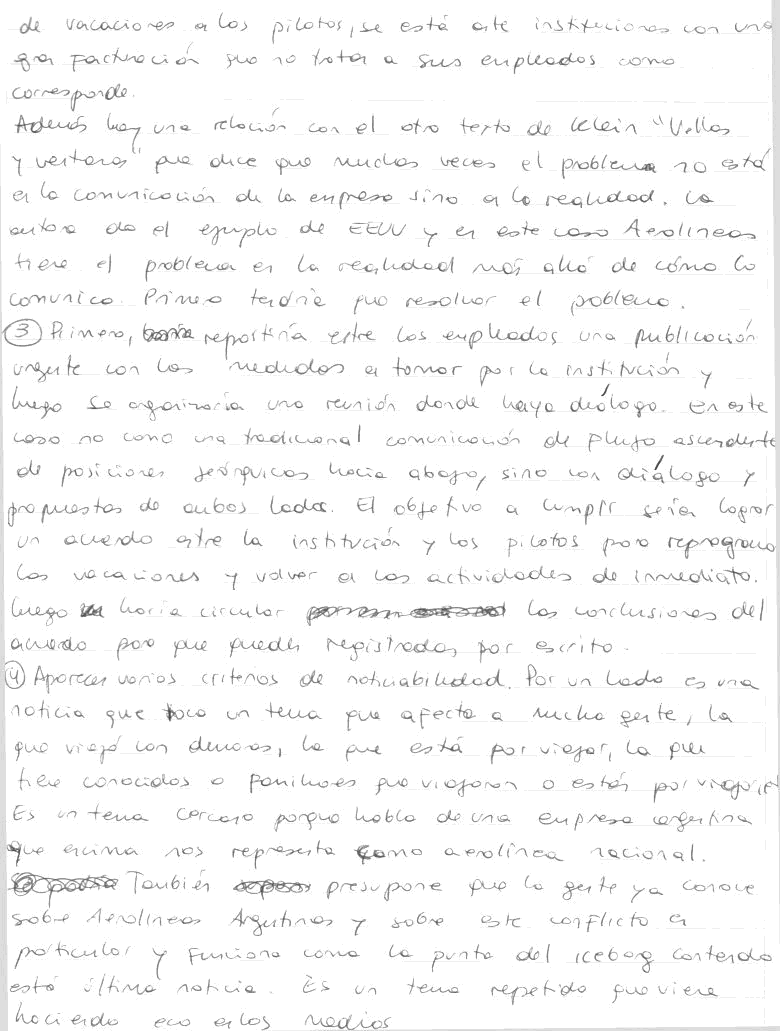 de vacaciones a los pilotos, se está ante instituciones con una
gran facturación que no tratan a sus empleados como
corresponde.
Además hay una relación con el otro texto de Klein "Vallas
y ventanas" que dice que muchas veces el problema no está
en la comunicación de la empresa sino en la realidad. La
autora da el ejemplo de EEUU y en este caso Aerolíneas
tiene el problema en la realidad más allá de cómo lo
comunica. Primero tendría que resolver el problema.
3 Primero, repartiría entre los empleados una publicación
urgente con las medidas a tomar por la institución y
luego se organizaría una reunión donde haya diálogo. En este
caso no como una tradicional comunicación de flujo ascendente
de posiciones jerárquicas hacia abajo, sino con diálogo y
propuestas de ambos lados. El objetivo a cumplir sería lograr
un acuerdo entre la institución y los pilotos para reprogramar
las vacaciones y volver a las actividades de inmediato.
Luego haría circular las conclusiones del
acuerdo para que queden registradas por escrito.
4 Aparecen varios criterios de noticiabilidad. Por un lado es una
noticia que toca un tema que afecta a mucha gente, la
que viajó con demoras, la que está por viajar, la que
tiene conocidos o familiares que viajaron o están por viajar.
Es un tema cercano porque habla de una empresa argentina
que encima nos representa como aerolínea nacional.
También presupone que la gente ya conoce
sobre Aerolíneas Argentinas y sobre este conflicto en
particular y funciona como la punta del iceberg contando
esta última noticia. Es un tema repetido que viene
haciendo eco en los medios